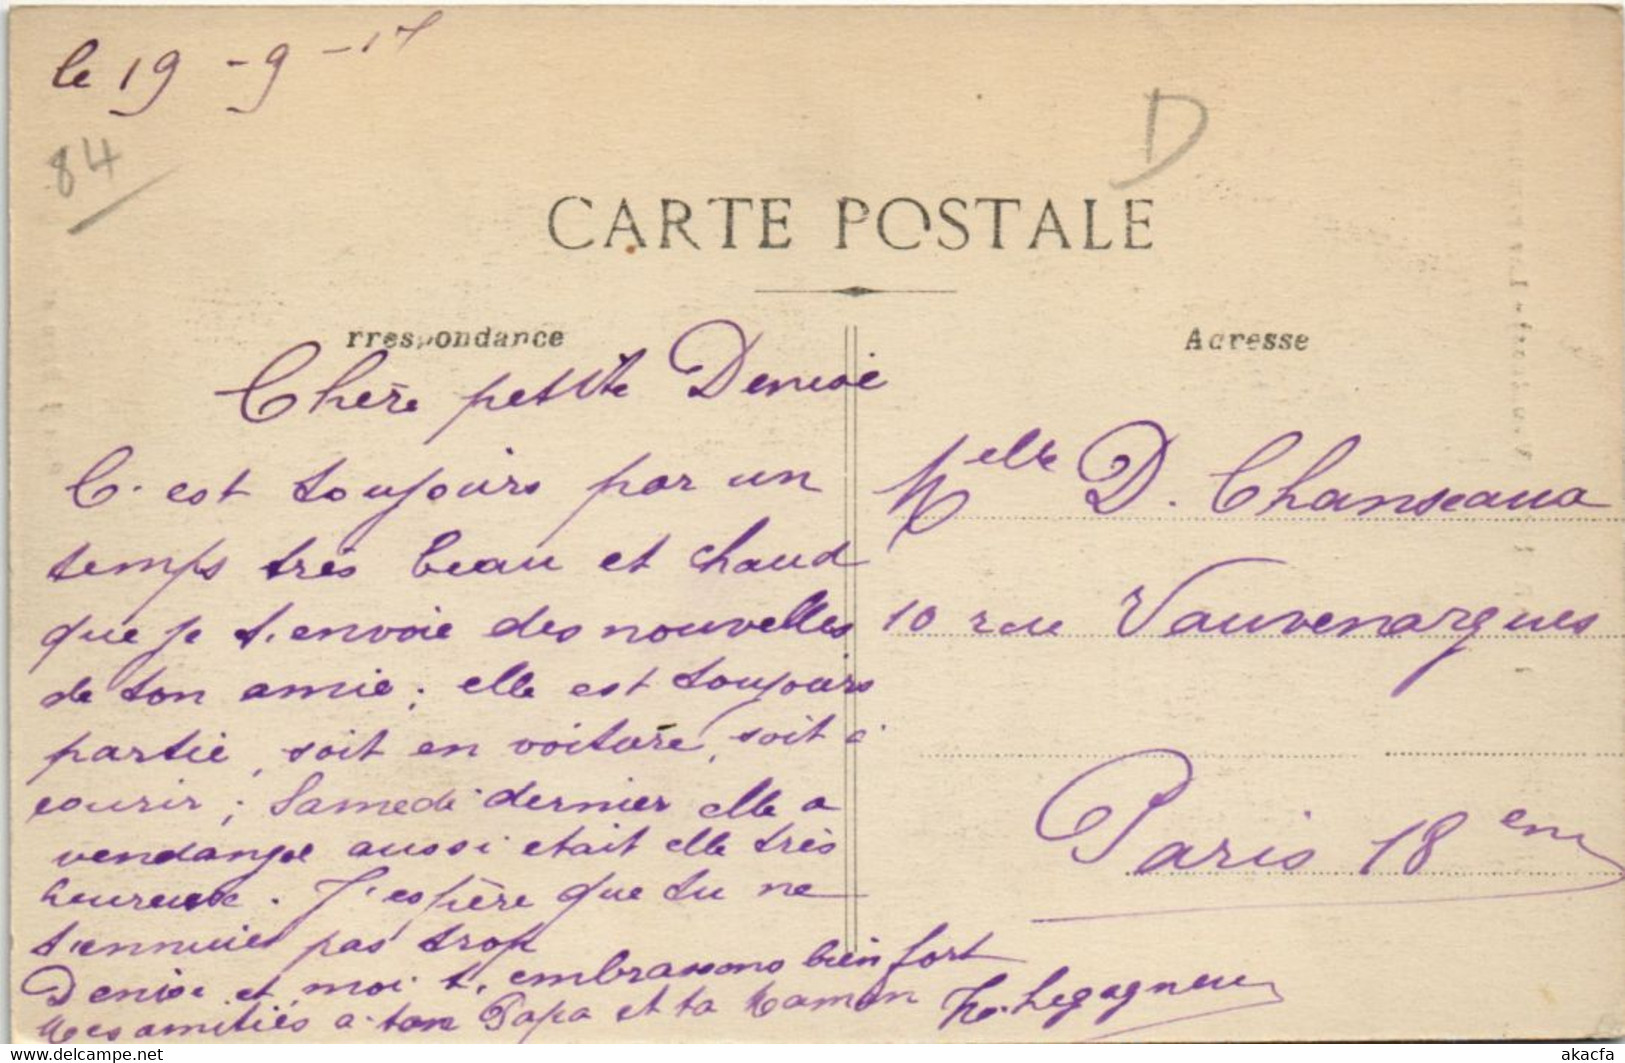 le 19 - 9 - 17
84
D
CARTE POSTALE
rrespondance
Adresse
Chère petite Denise
C'est toujours par un
temps très beau et chaud
que je t'envoie des nouvelles
de ton amie; elle est toujours
partie, soit en voiture, soit à
courir; Samedi dernier elle a
vendangé aussi etait elle très
heureuse. J'espère que tu ne
t'ennuies pas trop
Denise et moi t'embrassons bien fort
Mes amitiés a ton Papa et ta Maman
Melle D. Chanseaux
10 rue Vauvenargues
Paris 18 em
Legagneu
akacfa
www.delcampe.net